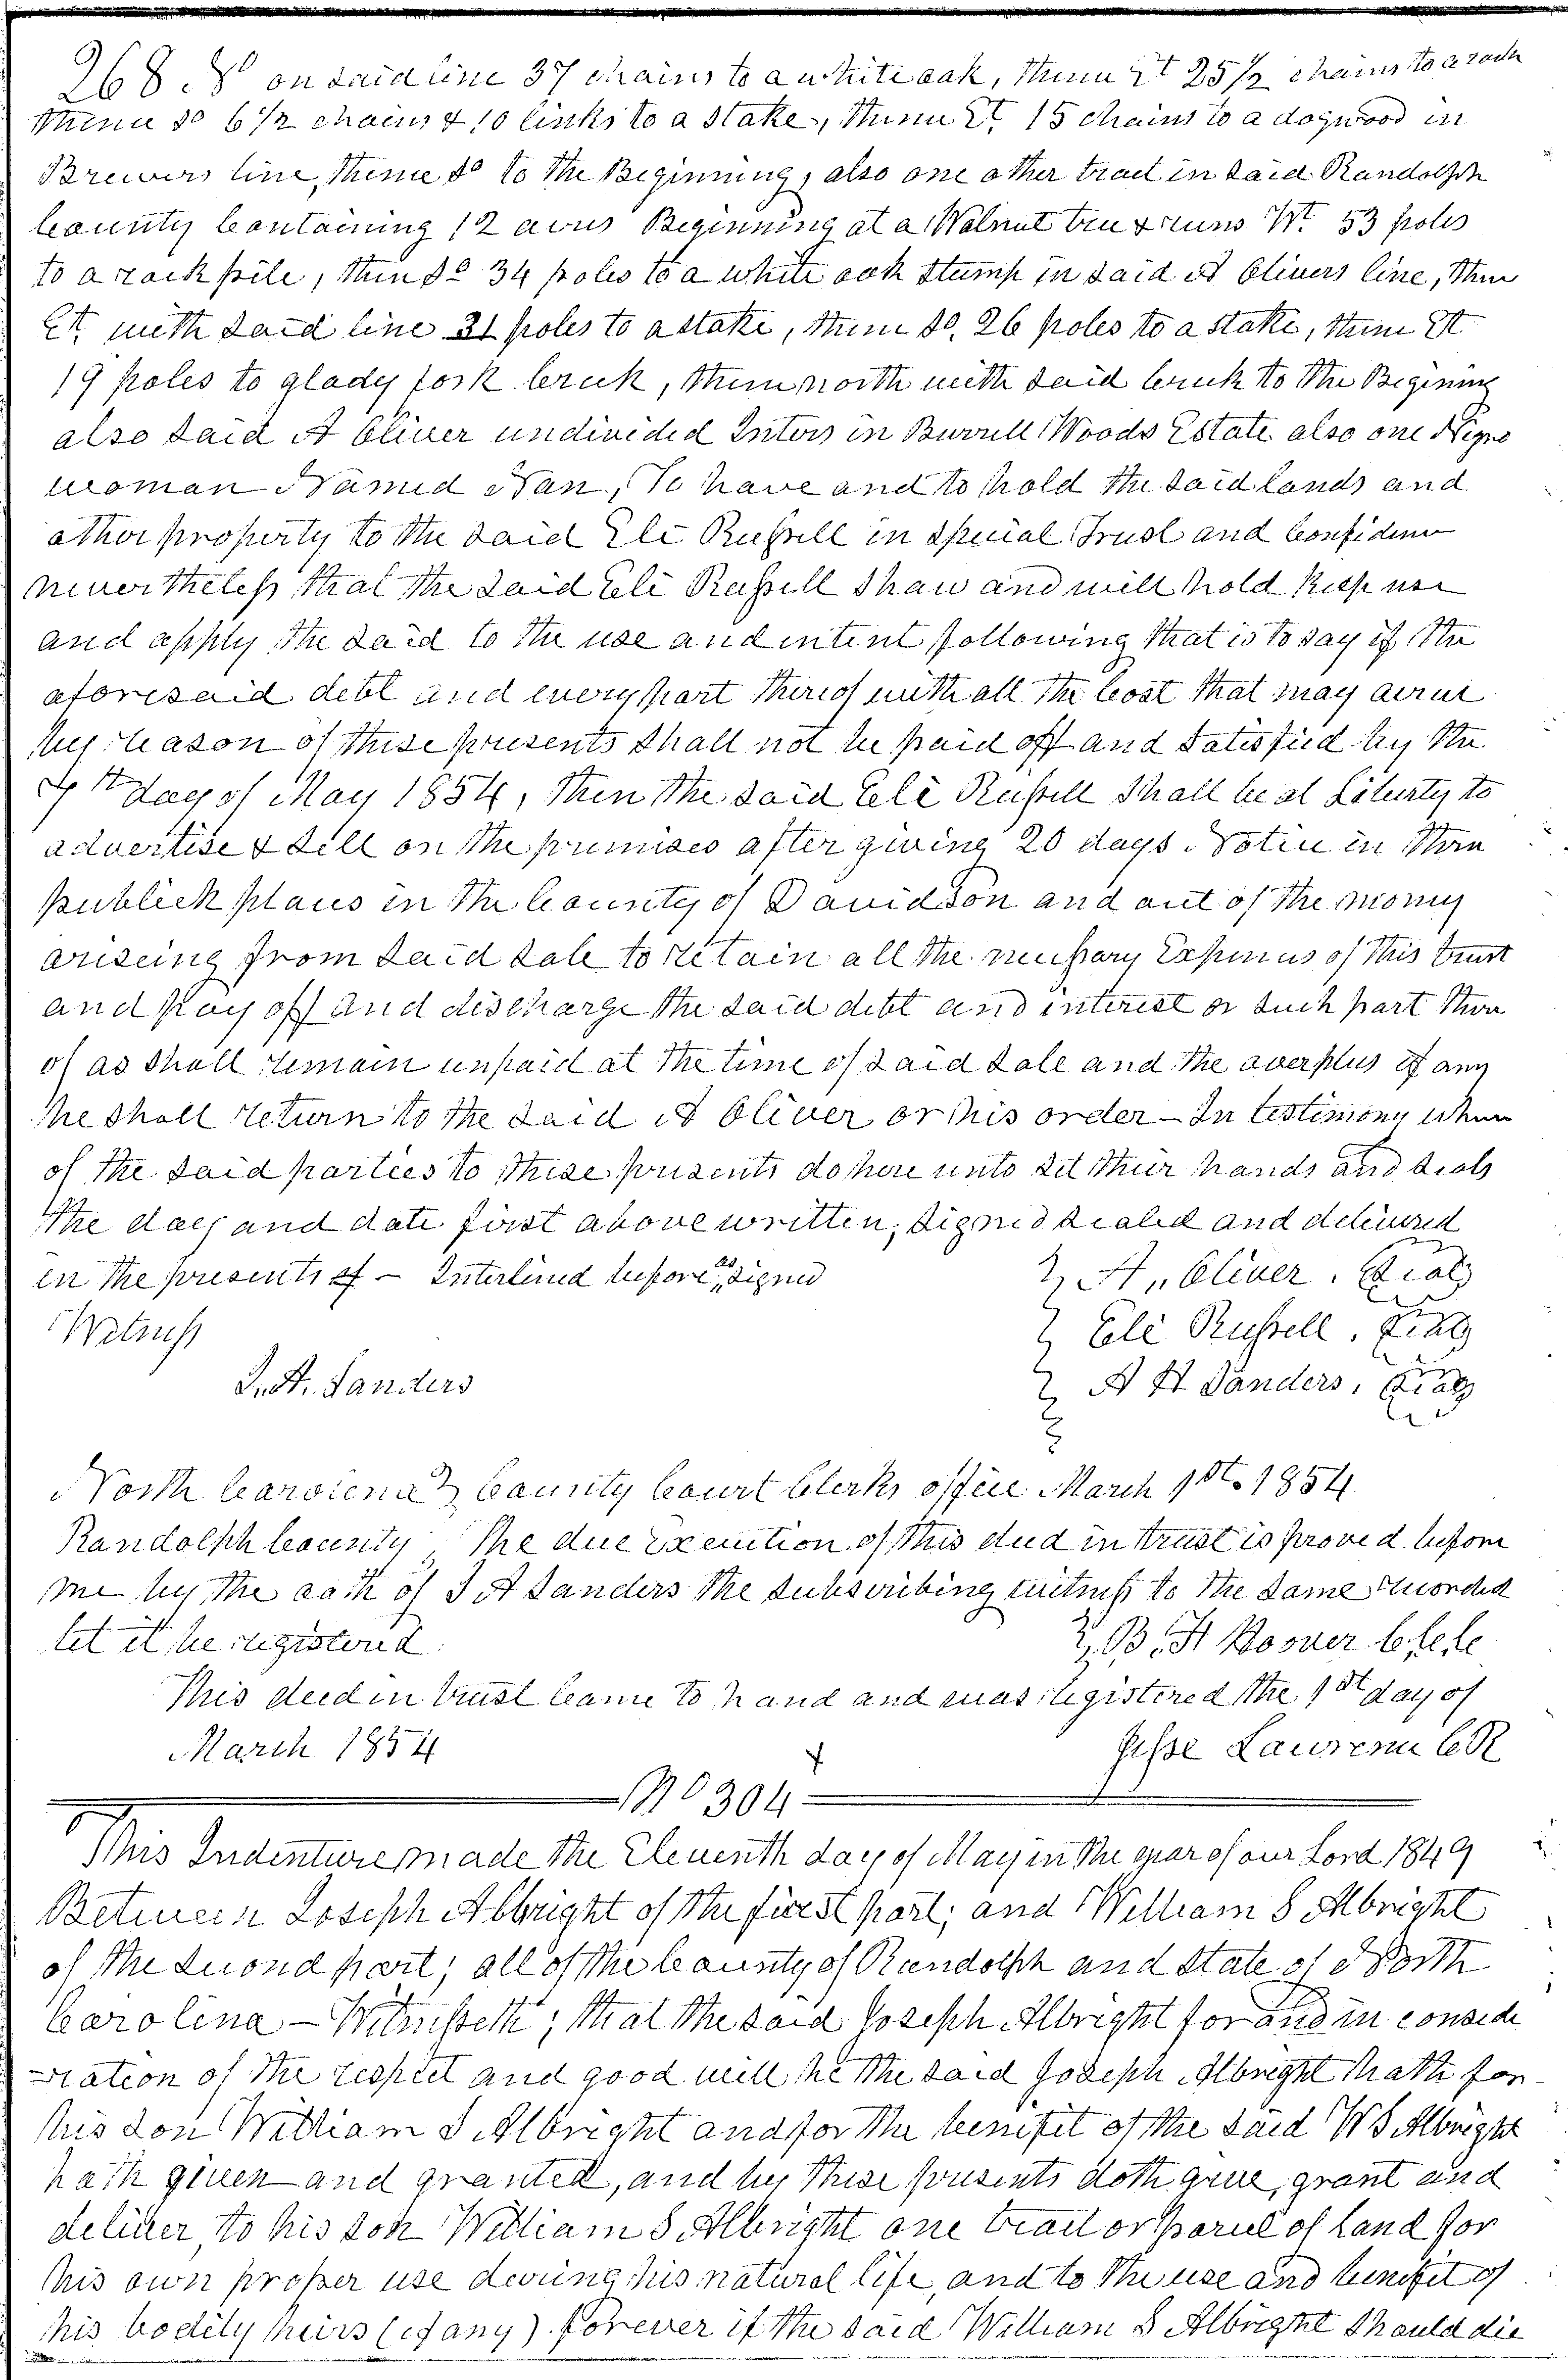 268. So on said line 37 chains to a white oak, thence Et 25 1/2 chains to a rock
thence So 6 1/2 chains & 10 links to a Stake, thence Et 15 chains to a dogwood in
Brewers line, thence So to the Beginning, also one other tract in said Randolph
County Containing 12 acres Beginning at a Walnut tree & runs Wt 53 poles
to a rock pile, then So 34 poles to a white oak Stump in said A Olivers line, then
Et, with said line 31 poles to a stake, thence So, 26 poles to a stake, thence Et
19 poles to glady fork Creek, then north with said Creek to the Begining
also said A Oliver undivided Inters in Burrell Woods Estate also one Negro
woman Named Nan, To have and to hold the said lands and
other property to the said Eli Russell in Special Trust and Confidence
nevertheless that the said Eli Russell Shall and will hold Keep use
and apply the said to the use and intent following that is to say if the
aforesaid debt and every part thereof with all the Cost that may acrue
by reason of these presents Shall not be paid off and Satisfied by the
day of May 1854, then the said Eli Russell Shall be at Liberty to
advertise & Sell on the premises after giving 20 days Notice in three
publick places in the County of Davidson and out of the money
ariseing from said sale to retain all the necessary Expences of this trust
and pay off and discharge the said debt and interest or such part there
of as Shall remain unpaid at the time of said Sale and the overplus if any
he shall return to the said A Oliver or his order - In testimony where
of the said parties to these presents do here unto set their hands and seals
the day and date first above written, signed sealed and delivered
in the presents of - Interlined before as signed A, Oliver. Seal
Witness Eli Russell, Seal
J. A. Sanders A H Sanders, Seal
North Carolina County Court Clerks office March 1st 1854
Randolph County, The due execution of this deed in trust is proved before
me by the oath of J A Sanders the subscribing witness to the same recorded
let it be registered. B. F Hoover C. C. C
This deed in trust Came to hand and was registered the 1st day of
March 1854 Jesse Lawrence C R
No 304
This Indenture made the Eleventh day of May in the year of our Lord 1849
Between Joseph Albright of the first part; and William S Albright
of the Second part; all of the County of Randolph and State of North
Carolina - Witnesseth; that the said Joseph Albright for and in conside
-ration of the respect and good will he the said Joseph Albright hath for
his son William S Albright and for the benefit of the said W S Albright
hath given and granted, and by these presents doth give, grant and
deliver, to his son William S Albright one tract or parcel of land for
his own proper use during his natural life, and to the use and benefit of
his bodily heirs (if any) forever if the said William S Albright Should die